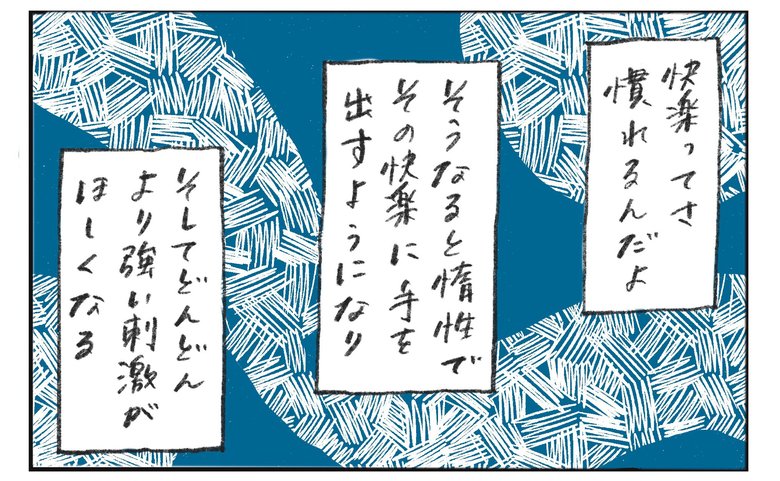 快楽ってさ
慣れるんだよ
そうなると惰性で
その快楽に手を
出すようになり
そしてどんどん
より強い刺激が
ほしくなる